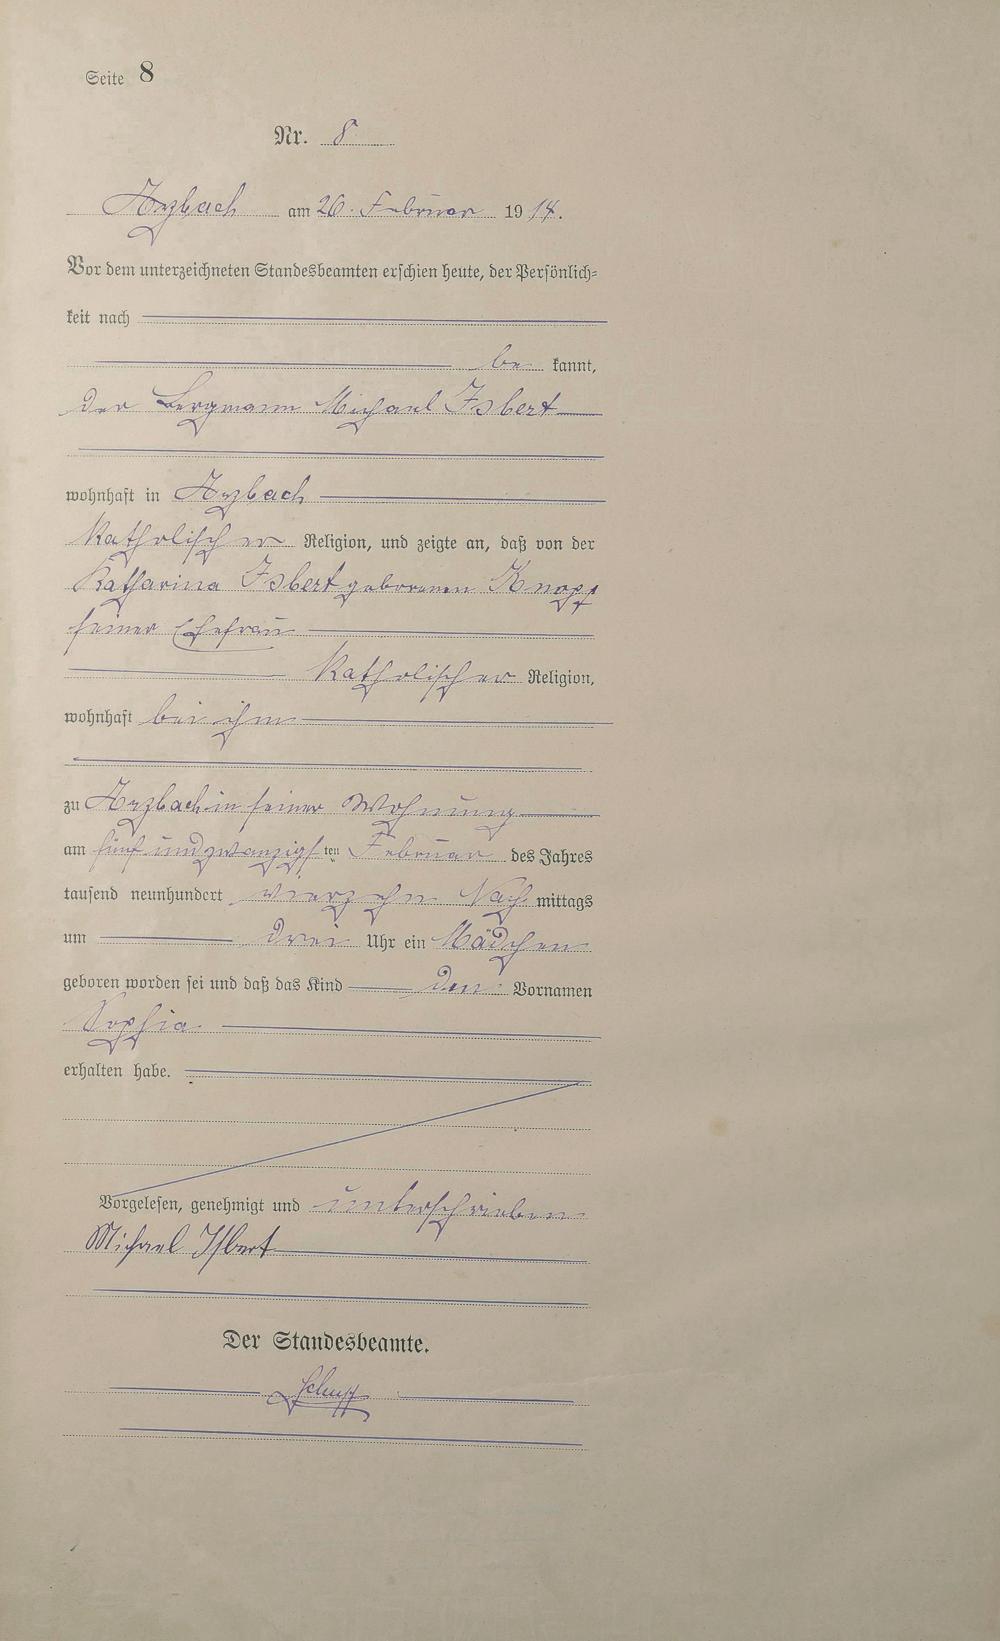 Seite 8
Nr. 8
Arzbach am 26. Februar 1914.
Vor dem unterzeichneten Standesbeamten erschien heute, der Persönlich-
keit nach
be kannt,
der Bergmann Michael Isbert
wohnhaft in Arzbach
katholischer Religion, und zeigte an, daß von der
Katharina Isbert geborenen Knopp
seiner Ehefrau
katholischer Religion,
wohnhaft bei ihm
zu Arzbach in seiner Wohnung
am fünf und zwanzigsten Februar des Jahres
tausend neunhundert vierzehn Nach mittags
um drei Uhr ein Mädchen
geboren worden sei und daß das Kind den Vornamen
Sophia
erhalten habe.
Vorgelesen, genehmigt und unterschrieben
Michael Isbert
Der Standesbeamte.
Schupp